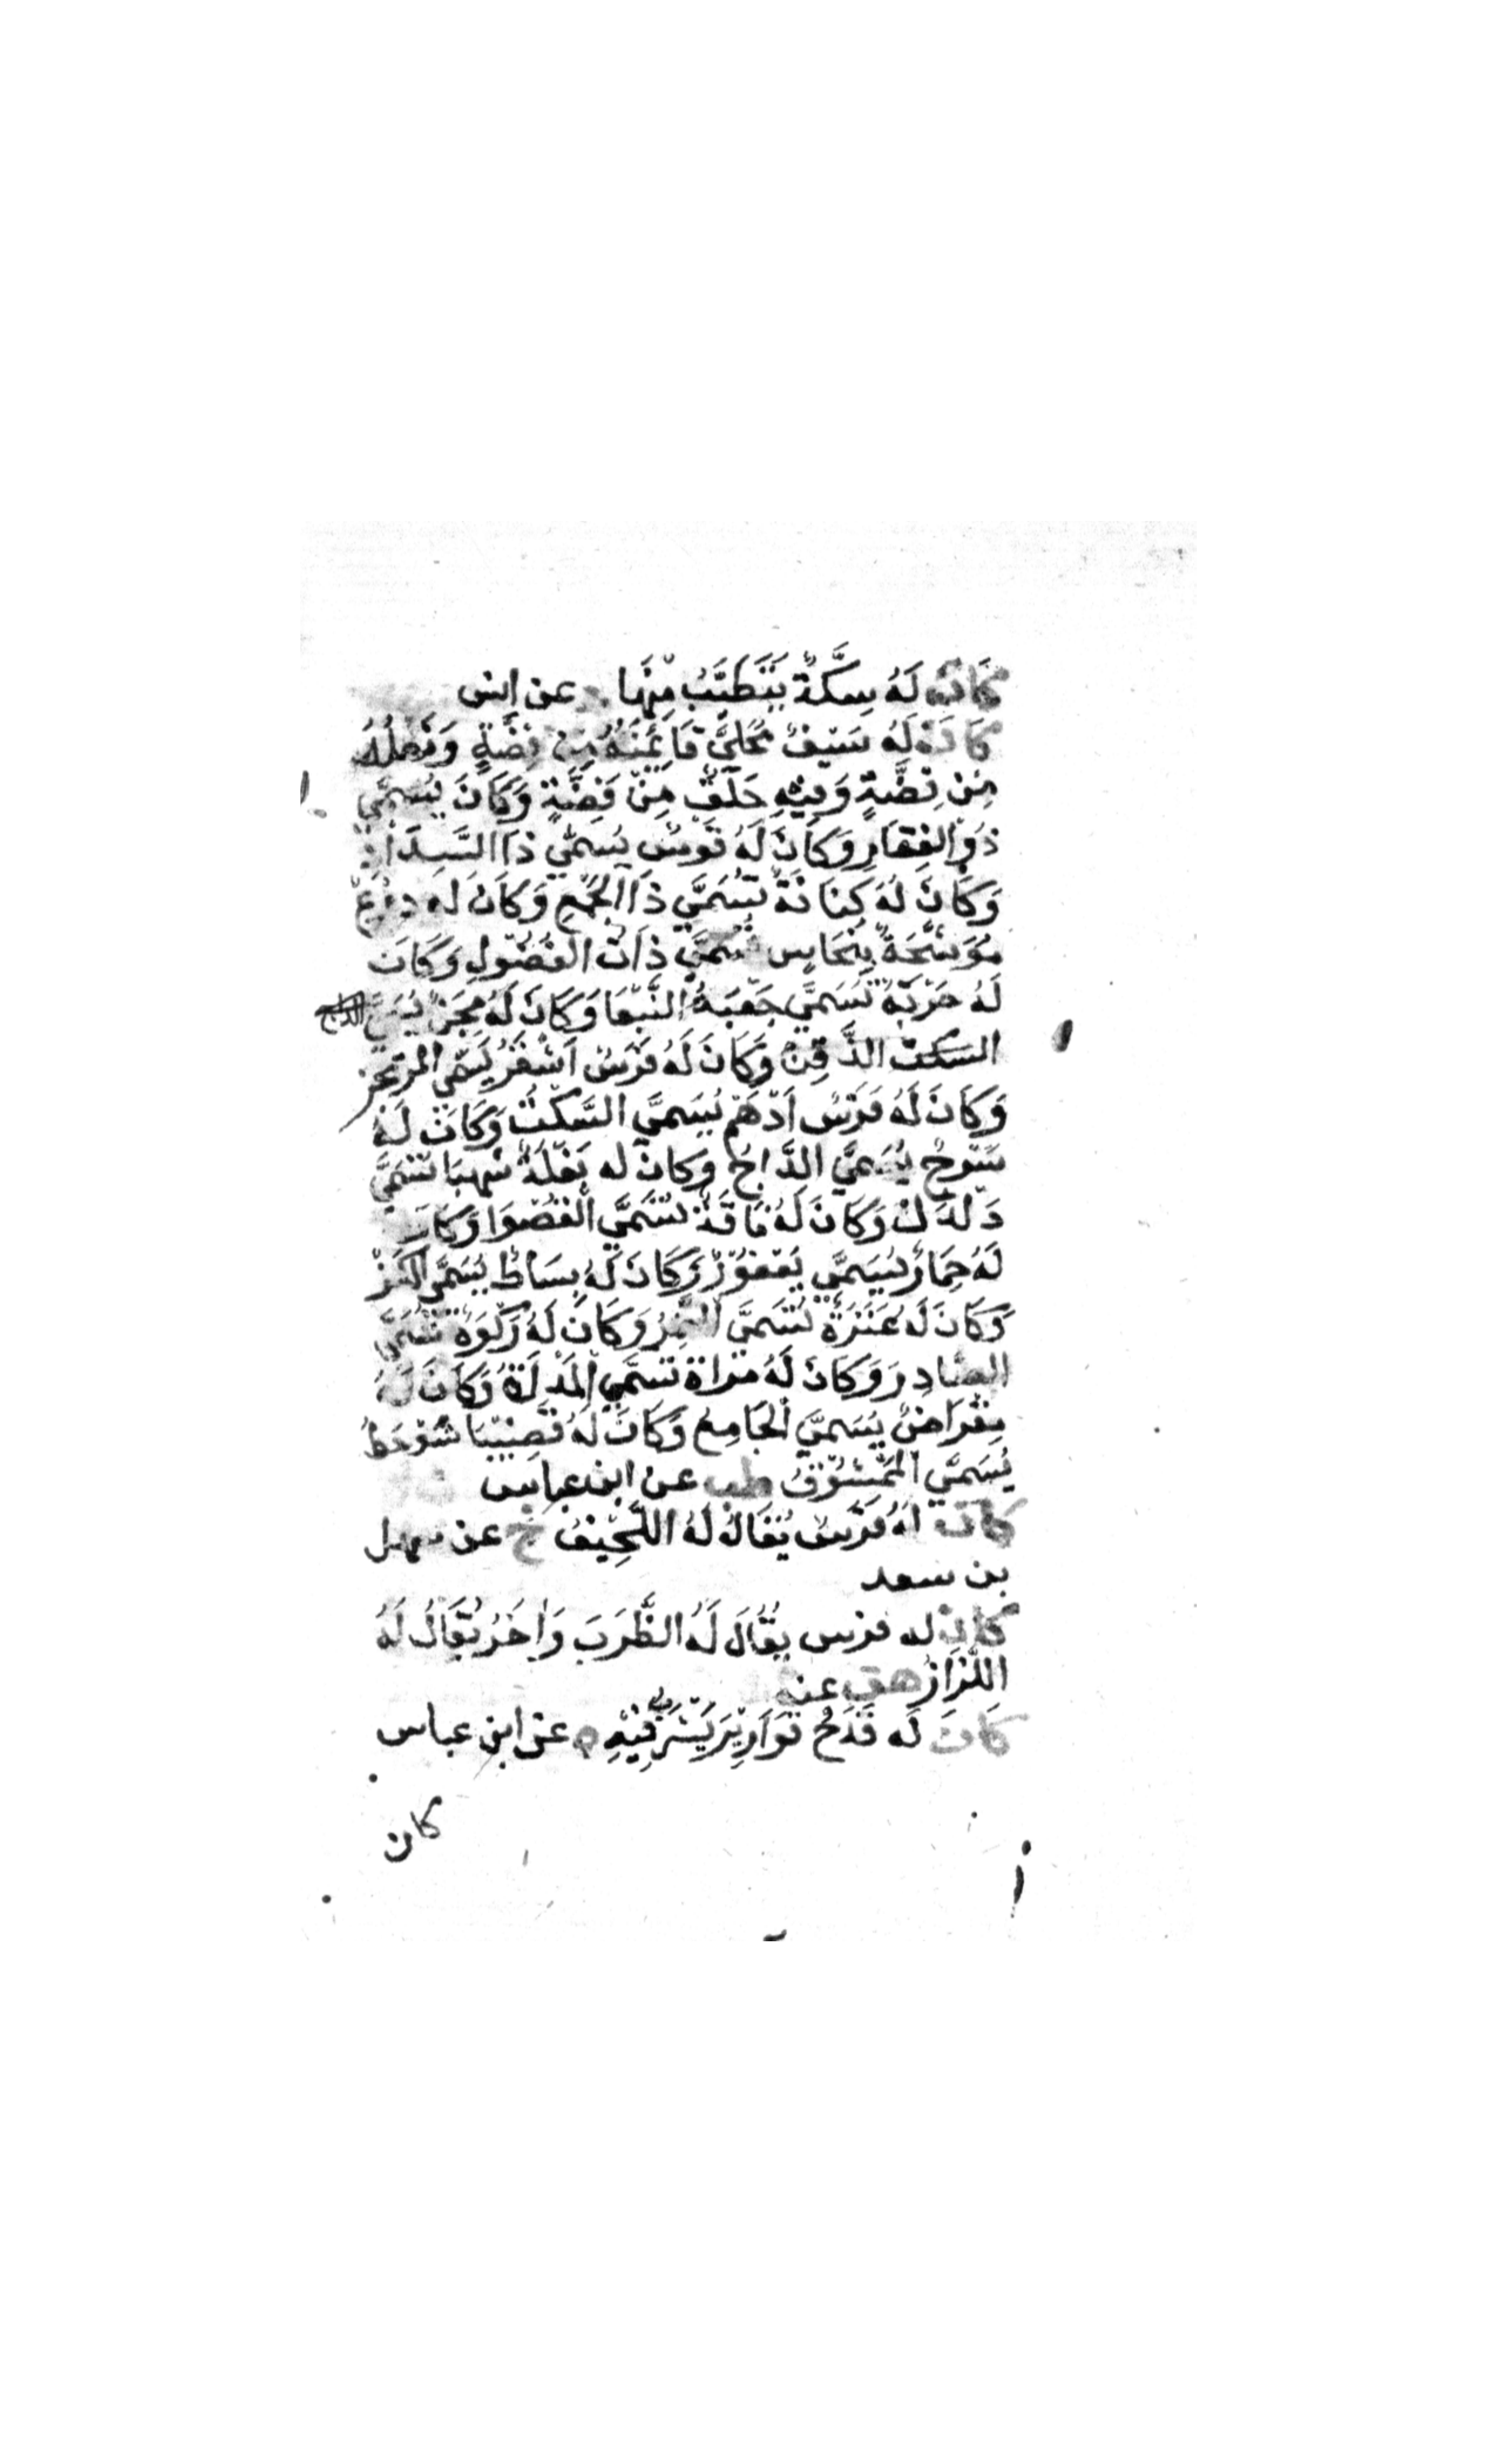 كَانَ لَهُ سِكَّةٌ يَتَطَيَّبُ مِنْهَا عن انس
كَانَ لَهُ سَيْفٌ مُحَلًّى قَائِمَتُهُ مِنْ فِضَّةٍ وَنَعْلُهُ
مِنْ فِضَّةٍ وَفِيْهِ حَلَقٌ مِنْ فِضَّةٍ وَكَانَ يُسَمَّي
ذُو الفِقَارِ وَكَانَ لَهُ قَوْسٌ يُسَمَّي ذَا السَّدَادِ
وَكَانَ لَهُ كِنَانَةٌ تُسَمَّي ذَا الجُمَعِ وَكَانَ لَه دِرْعٌ
مُوَشَّحَةٌ بِنُحَاسٍ تُسَمَّي ذَاتَ الفُضُولِ وَكَانَ
لَهُ حَرْبَةٌ تُسَمَّي النَّبْعَا وَكَانَ لَهُ مِجَنٌّ يُسَمَّي
الذَّقِنُ وَكَانَ لَهُ فَرَسٌ اَشْقَرُ يُسَمَّي المرتجز
وَكَانَ لَهُ فَرَسٌ اَدْهَمُ يُسَمَّي السَّكْبُ وَكَانَ لَهُ
سَرْجٌ يُسَمَّي الدَّاجُ وَكَانَ له بَغْلَةٌ شَهْبَا تُسَمَّي
دَلدَل وَكَانَ لَهُ نَاقَةٌ تُسَمَّي القُصْوَا وَكَانَ
لَهُ حِمَارٌ يُسَمَّي يَعْفُوْرْ وَكَانَ لَهُ بِسَاطٌ يُسَمَّي الكَزْ
وَكَانَ لَهُ عَنَزَةٌ تُسَمَّي النَّمِرُ وَكَانَ لَهُ رَكْوَةٌ تُسَمَّي
الصَّادِرَ وَكَانَ لَهُ مراة تُسَمَّي المَدِلَّةُ وَكَانَ لَهُ
مِقْرَاضٌ يُسَمَّي الجَامِعُ وَكَانَ لَهُ قَضِيْبًا شَوْحَطُ
يُسَمَّي المَمْشُوْقُ طب عن ابن عباس
كَانَ لَهُ فَرَسٌ يُقَالُ لَهُ اللُّحِيْفُ خ عن سهل
بن سعد
كَانَ له فرس يُقَالُ لَهُ الظَّرِبَ وَاَخَرُ يُقَالُ لَهُ
اللِّزَازُ هق عنه
كَانَ لَه قَدَحُ قَوَارِيْرَ يَشْرَبُ فِيْهِ ه عن ابن عباس
كان